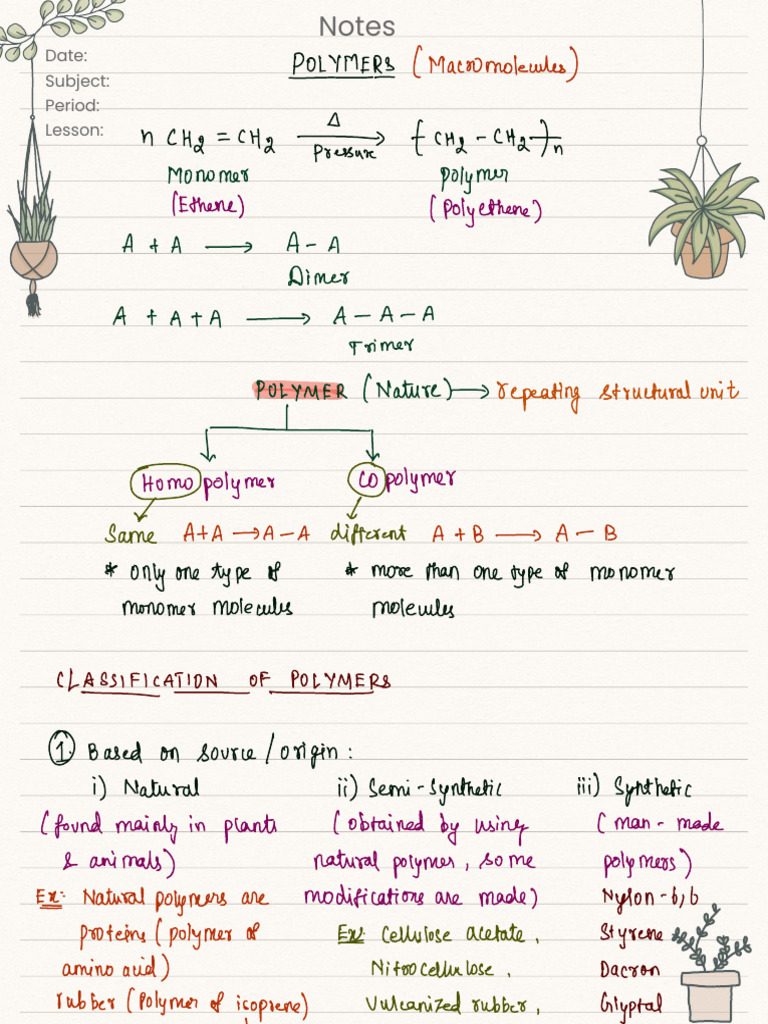 Notes
Date:
Subject:
Period:
Lesson:
POLYMERS (Macromolecules)
n CH2 = CH2 Δ Pressure {CH2 - CH2}n
Monomer Polymer
(Ethene) (Polyethene)
A + A → A - A
Dimer
A + A + A → A - A - A
Trimer
POLYMER (Nature) → repeating structural unit
Homopolymer Copolymer
Same A+A → A-A different A + B → A - B
* only one type of * more than one type of monomer
monomer molecules molecules
CLASSIFICATION OF POLYMERS
1. Based on source/origin:
i) Natural ii) Semi-Synthetic iii) Synthetic
(found mainly in plants (obtained by using (man-made
& animals) natural polymer, some polymers)
Ex:- Natural polymers are modifications are made) Nylon-6,6
proteins (polymer of Ex:- Cellulose acetate, Styrene
amino acid) Nitrocellulose, Dacron
rubber (Polymer of icoprene) Vulcanized rubber, Glyptal